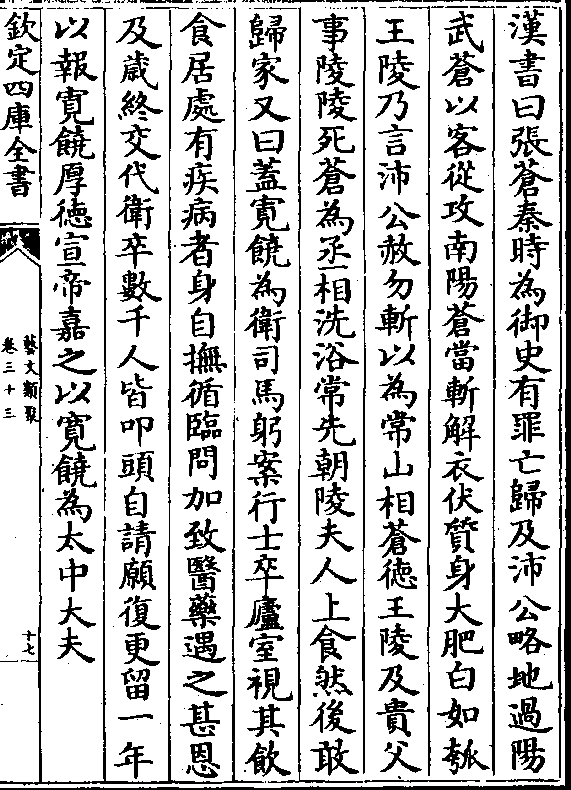 漢書曰張蒼秦時為御史有罪亡歸及沛公略地過陽
武蒼以客從攻南陽蒼當斬解衣伏質身大肥白如瓠
王陵乃言沛公赦勿斬以為常山相蒼徳王陵及貴父
事陵陵死蒼為丞相洗浴常先朝陵夫人上食然後敢
歸家又曰蓋寛饒為衛司馬躬案行士卒廬室視其飲
食居處有疾病者身自撫循臨問加致醫藥遇之甚恩
及歳終交代衛卒數千人皆叩頭自請願復更留一年
以報寛饒厚徳宣帝嘉之以寛饒為太中大夫
欽定四庫全書
藝文類聚
卷三十三
十七